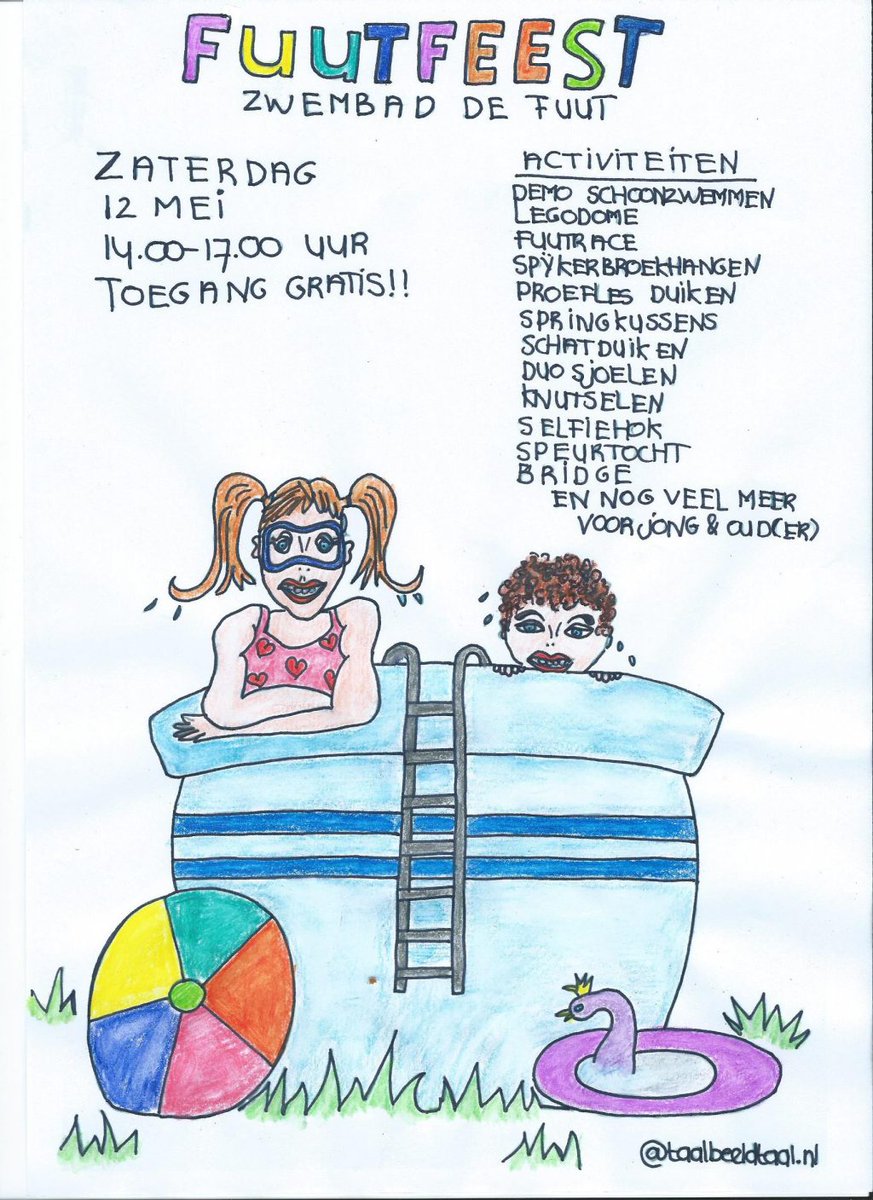 FUUTFEEST
ZWEMBAD DE FUUT
ZATERDAG
12 MEI
14.00-17.00 UUR
TOEGANG GRATIS!!
ACTIVITEITEN
DEMO SCHOONZWEMMEN
LEGODOME
FUUTRACE
SPŸKERBROEKHANGEN
PROEFLES DUIKEN
SPRINGKUSSENS
SCHATDUIKEN
DUO SJOELEN
KNUTSELEN
SELFIEHOK
SPEURTOCHT
BRIDGE
EN NOG VEEL MEER
VOOR JONG & OUD(ER)
@taalbeeldtaal.nl